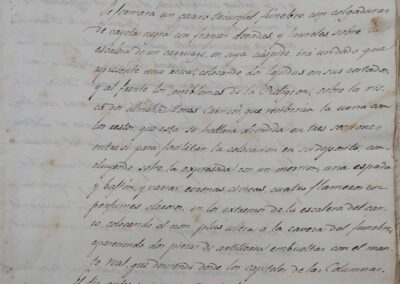 Se formará un carro triunfal fúnebre con colgaduras
de vayeta negra con franjas doradas, y laureles sobre la
escalera de un cenotafio, en cuya cúspide irá un dado que
represente una roca, colocando dos lápidas en sus costados,
y al frente los emblemas de la Religion, sobre la
ca dos almohadillones carmesí, que recibirán la urna con
los restos, que esta se hallará dividida en tres secciones
entre sí para facilitar la colocacion en su deposito, con-
cluyendo sobre la expresada con un morrion, una espada
y baston, y varias coronas cívicas, cuatro flameros con
perfumes olorosos, en los extremos de la escalera del car-
ro, colocando el non plus ultra á la caveza del fúnebre,
apareciendo dos piezas de artilleria embueltas con el man-
to real, que desciende desde los capiteles de las Columnas.